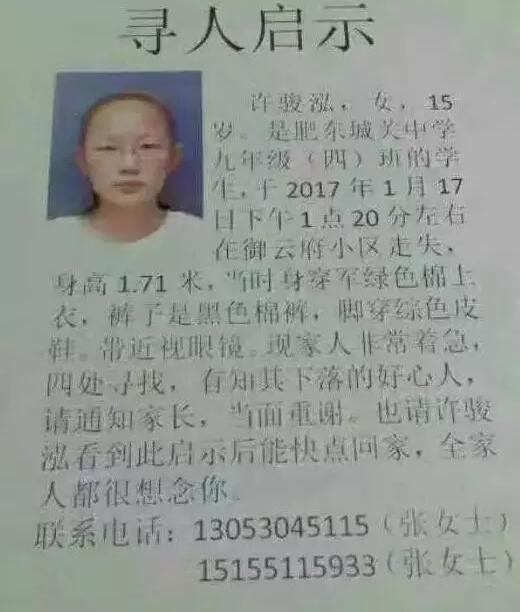 寻人启示
许骏泓，女，15
岁。是肥东城关中学
九年级（四）班的学
生，于 2017 年 1 月 17
日下午 1 点 20 分左右
在御云府小区走失，
身高 1.71 米，当时身穿军绿色棉上
衣，裤子是黑色棉裤，脚穿综色皮
鞋。带近视眼镜。现家人非常着急，
四处寻找，有知其下落的好心人，
请通知家长，当面重谢。也请许骏
泓看到此启示后能快点回家，全家
人都很想念你。
联系电话：13053045115（张女士）
15155115933（张女士）